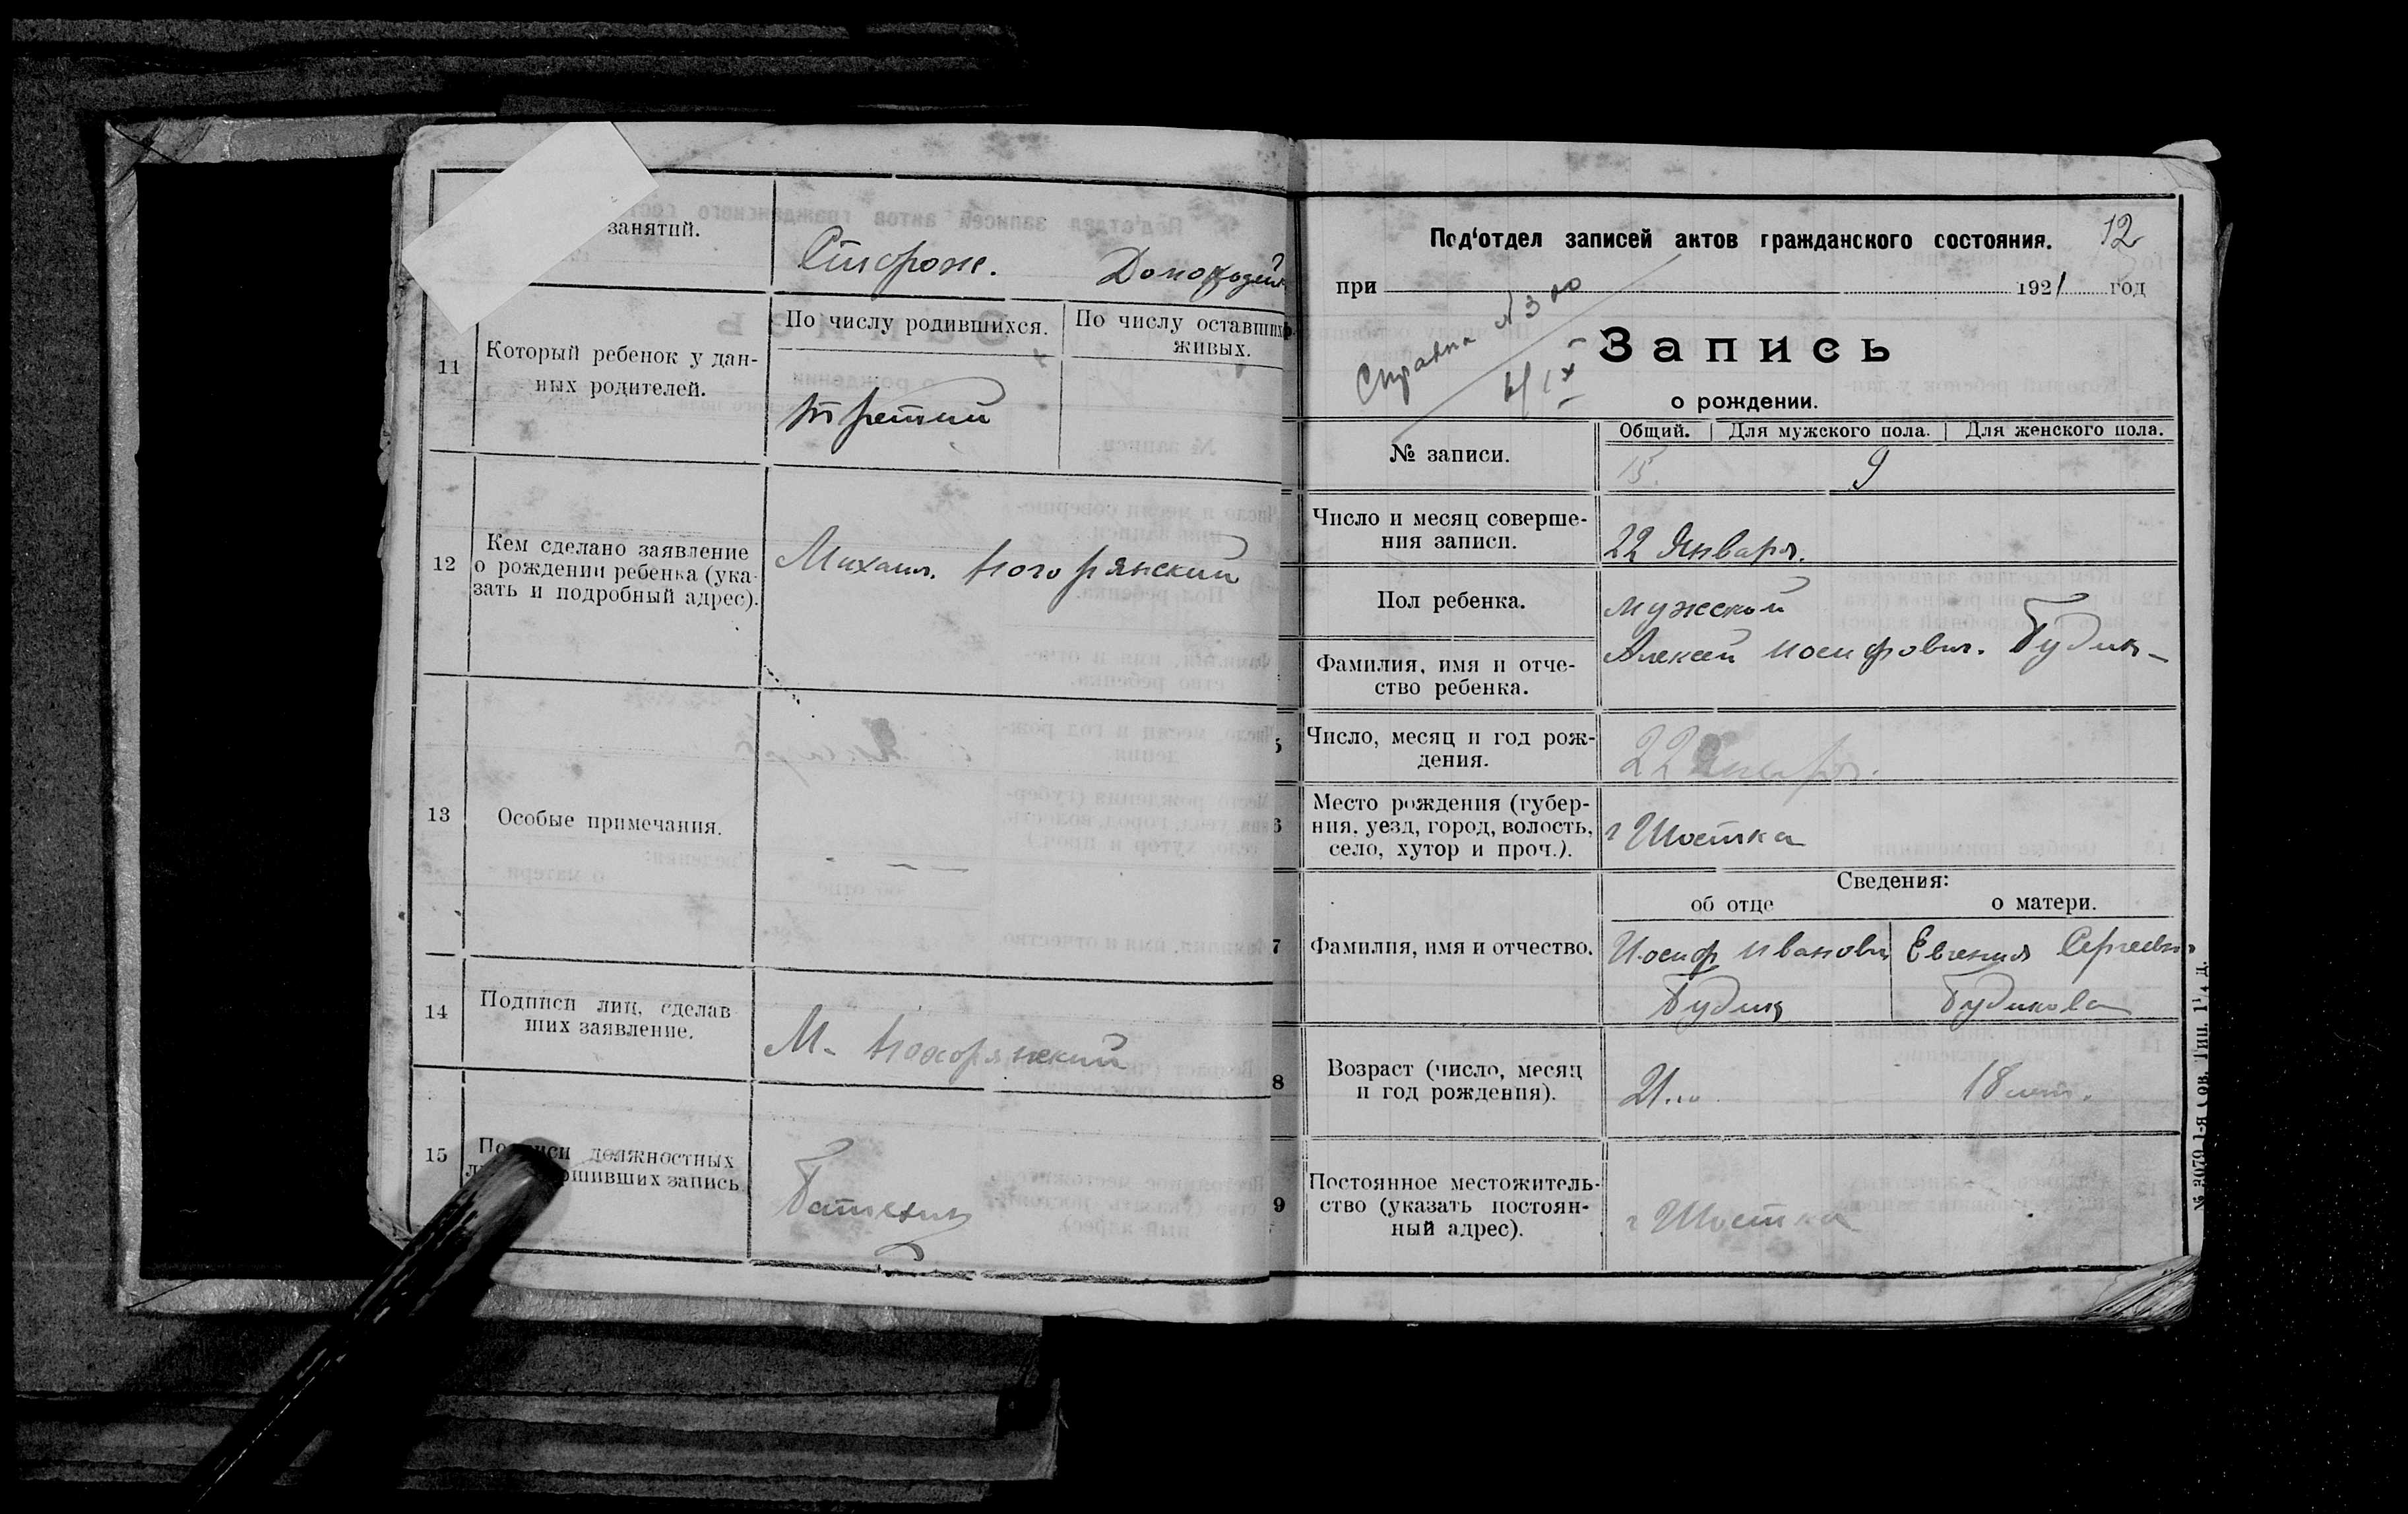 занятий.
Сторож.
11
Который ребенок у дан-
ных родителей.
По числу родившихся.
По числу оставших
живых.
третий
12
Кем сделано заявление
о рождении ребенка (ука-
зать и подробный адрес).
Михаил
13
Особые примечания.
14
Подписи лиц, сделав
ших заявление.
М.
15
должностных
запись
12
Под'отдел записей актов гражданского состояния.
при 1921 год
Справка №300
Запись
о рождении.
№ записи.
Общий. Для мужского пола. Для женского пола.
15. 9
Число и месяц соверше-
ния записи.
22 Января.
Пол ребенка.
мужской
Фамилия, имя и отче-
ство ребенка.
Алексей Иосифович. Будик
5
Число, месяц и год рож-
дения.
22 Января.
6
Место рождения (губер-
ния, уезд, город, волость,
село, хутор и проч.).
г Шостка
Сведения:
об отце
о матери.
7
Фамилия, имя и отчество.
Иосиф Иванович
Будик
Евгения Сергеевн
Будикова
8
Возраст (число, месяц
и год рождения).
21
18 лет.
9
Постоянное местожитель-
ство (указать постоян-
ный адрес).
г Шостка